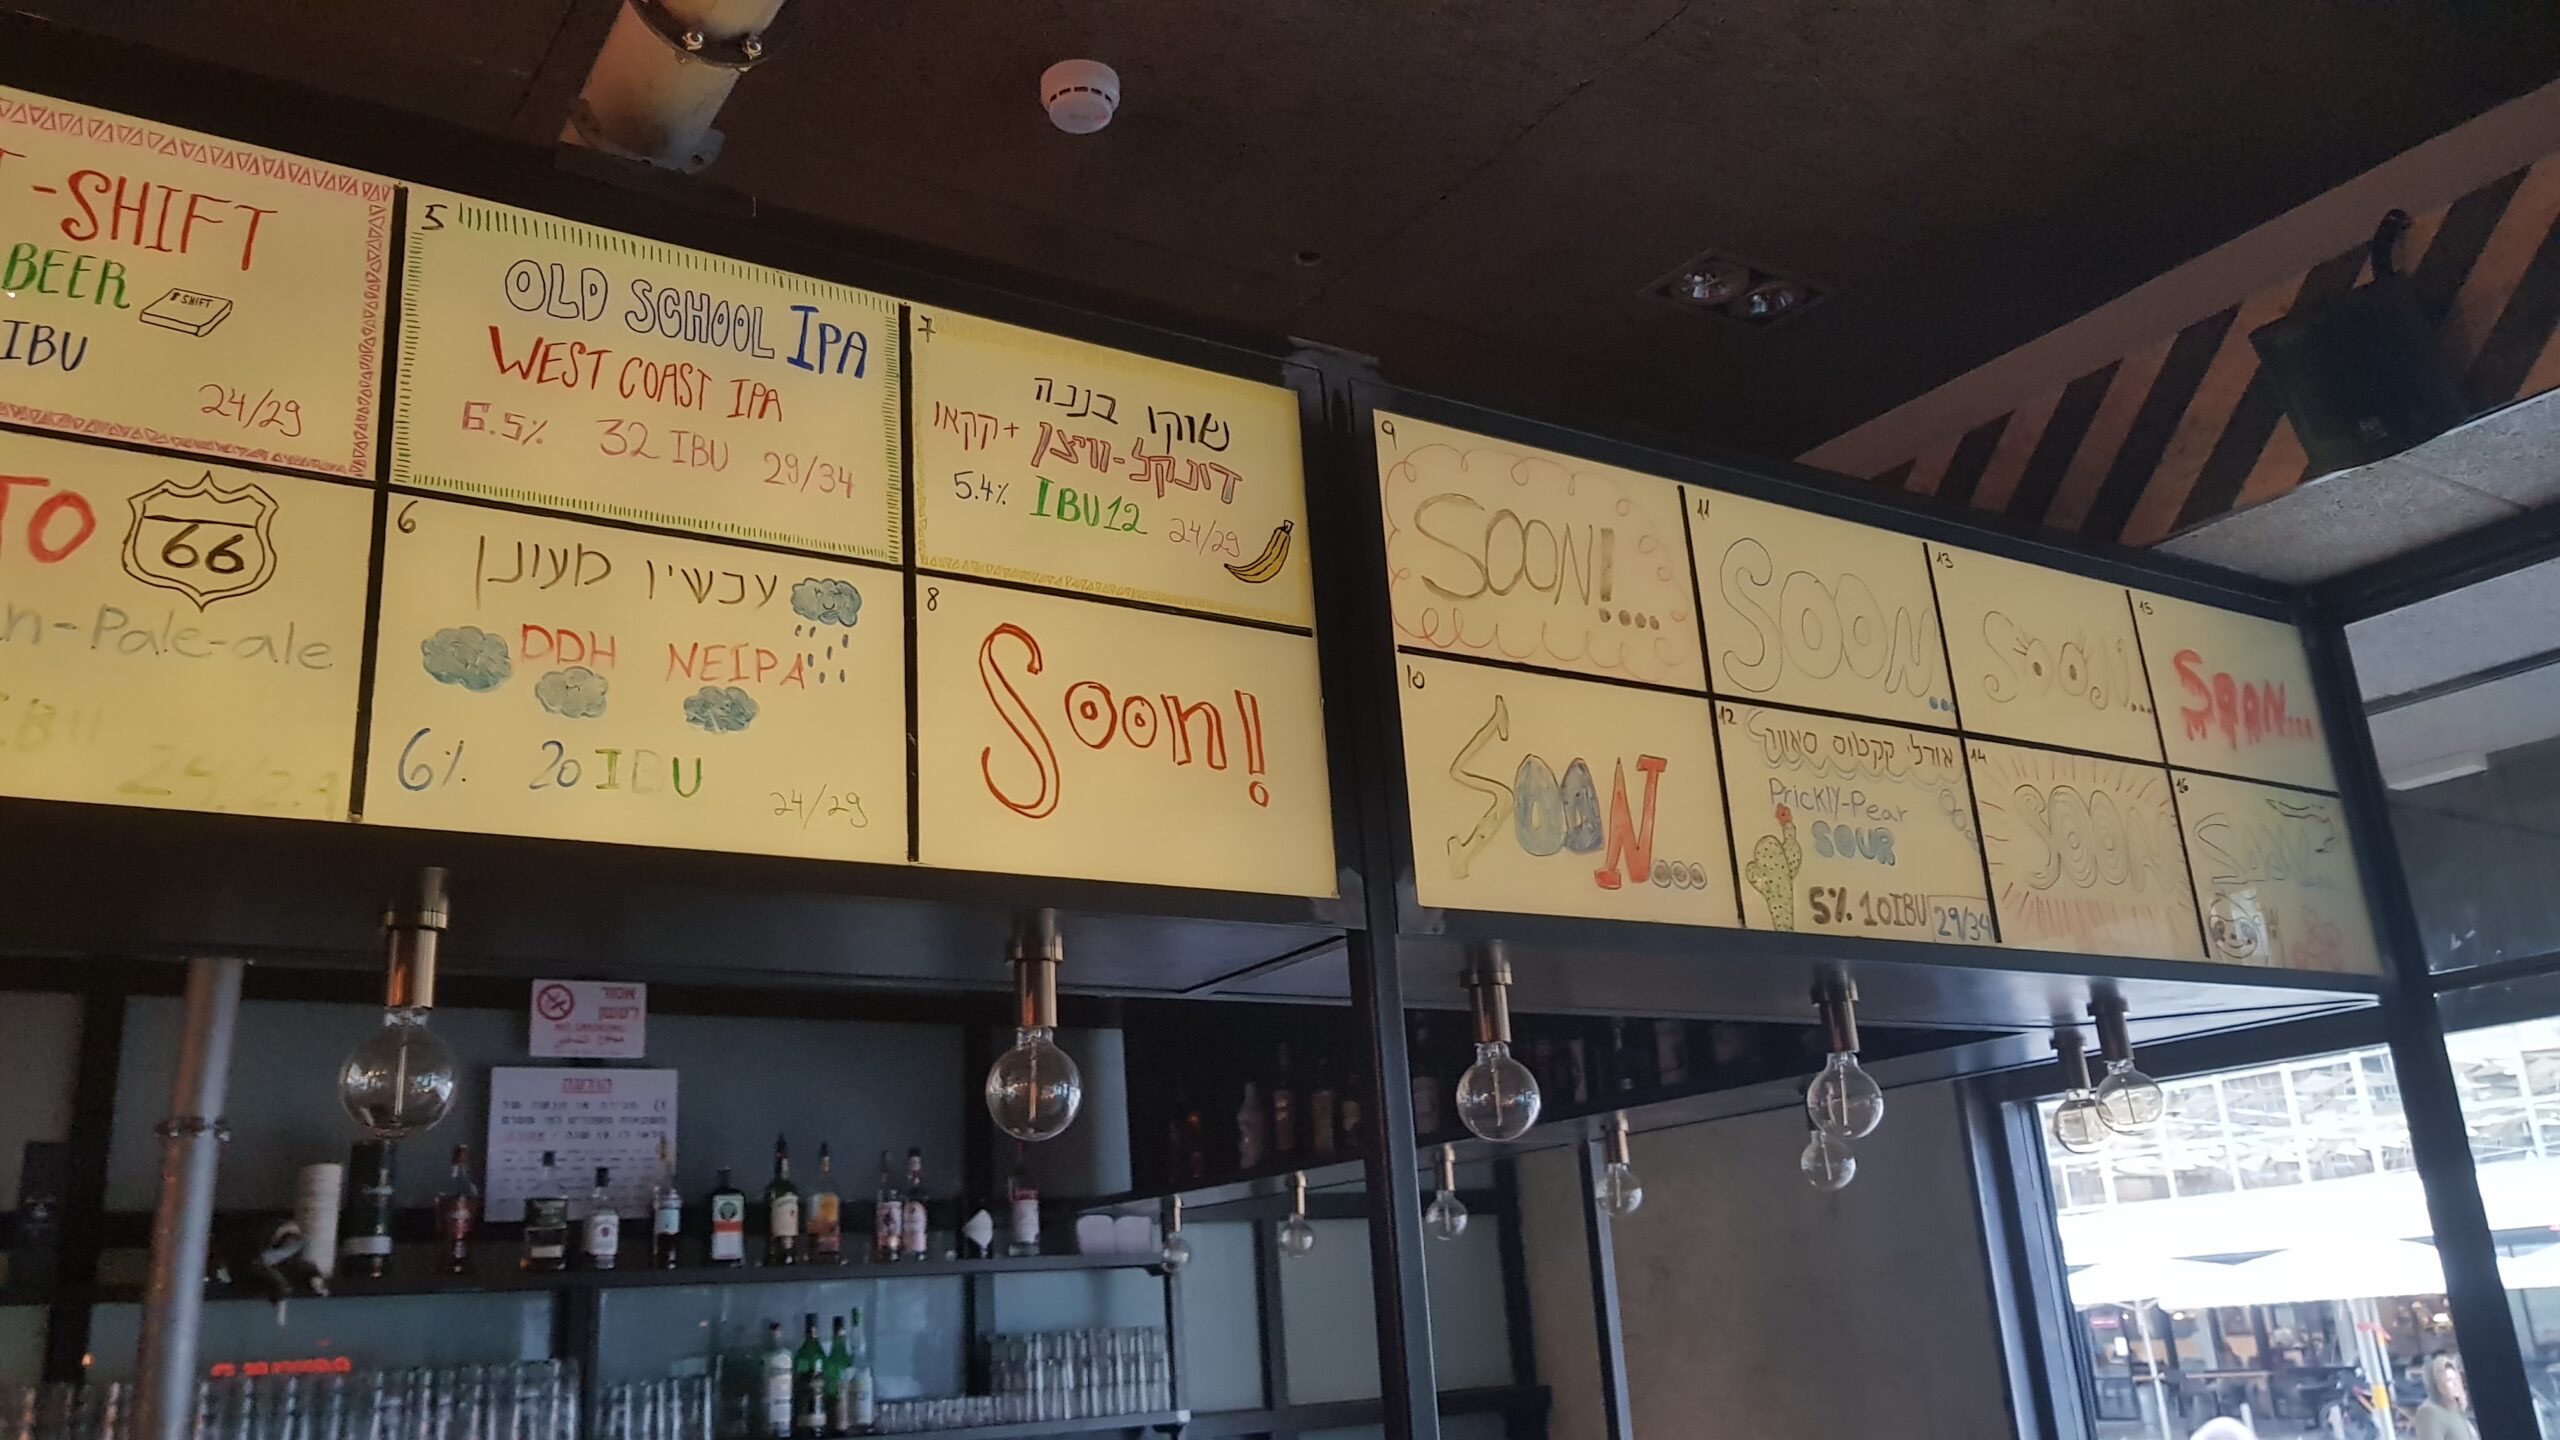 -SHIFT
BEER
SHIFT
IBU
24/29
TO
66
n-Pale-ale
24/29
5
OLD SCHOOL IPA
WEST COAST IPA
6.5% 32 IBU 29/34
6
עכשיו מעונן
DDH NEIPA
6% 20 IBU
24/29
7
שוקו בננה
דונקל-וויצן + קקאו
5.4% IBU12 24/29
8
Soon!
9
SOON!...
10
SOON...
11
SOON...
12
אודלי קקטוס סאוור
Prickly-Pear
SOUR
5% 10IBU 29/34
13
SOON...
14
SOON
15
SOON...
16
SOON
NO SMOKING